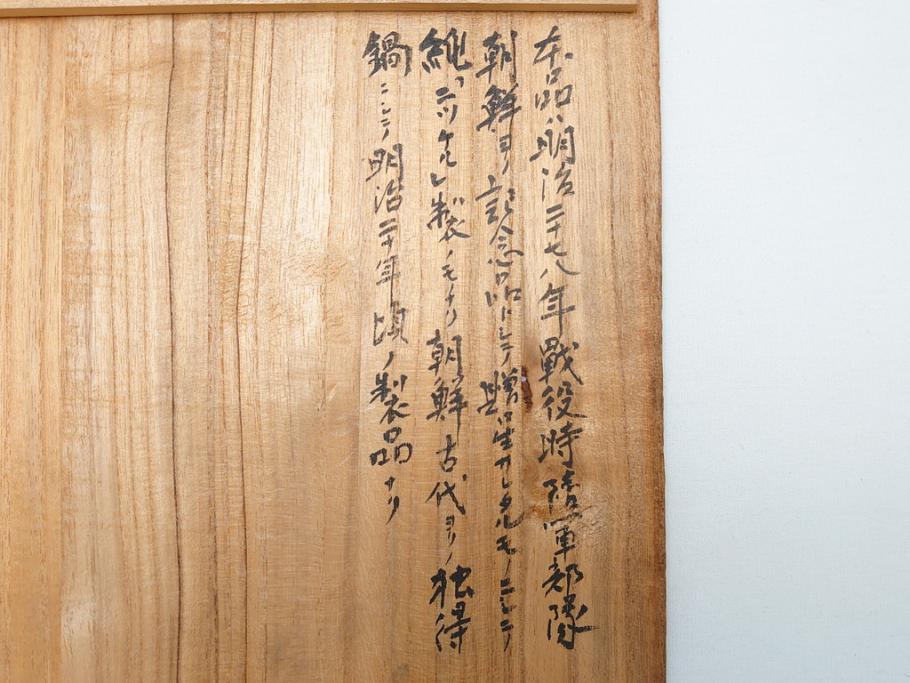 本品ハ明治二十七八年戰役時陸軍部隊
朝鮮ヨリ記念品トシテ贈呈サレタルモノニシテ
純「ニッケル」製ノモナリ朝鮮古代ヨリノ独得
鍋ニシテ明治二十年頃ノ製品ナリ